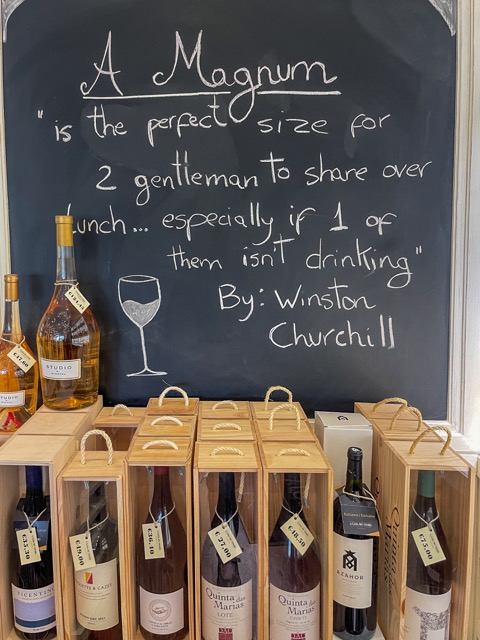 A Magnum
"is the perfect size for
2 gentleman to share over
lunch... especially if 1 of
them isn't drinking"
By: Winston
Churchill
STUDIO
€47.00
STUDIO
€33.50
VICENTIN
€49.00
€36.10
€37.00
Quinta das
Marias
LOTE
€48.50
Quinta das
Marias
AZAHOR
€75.00